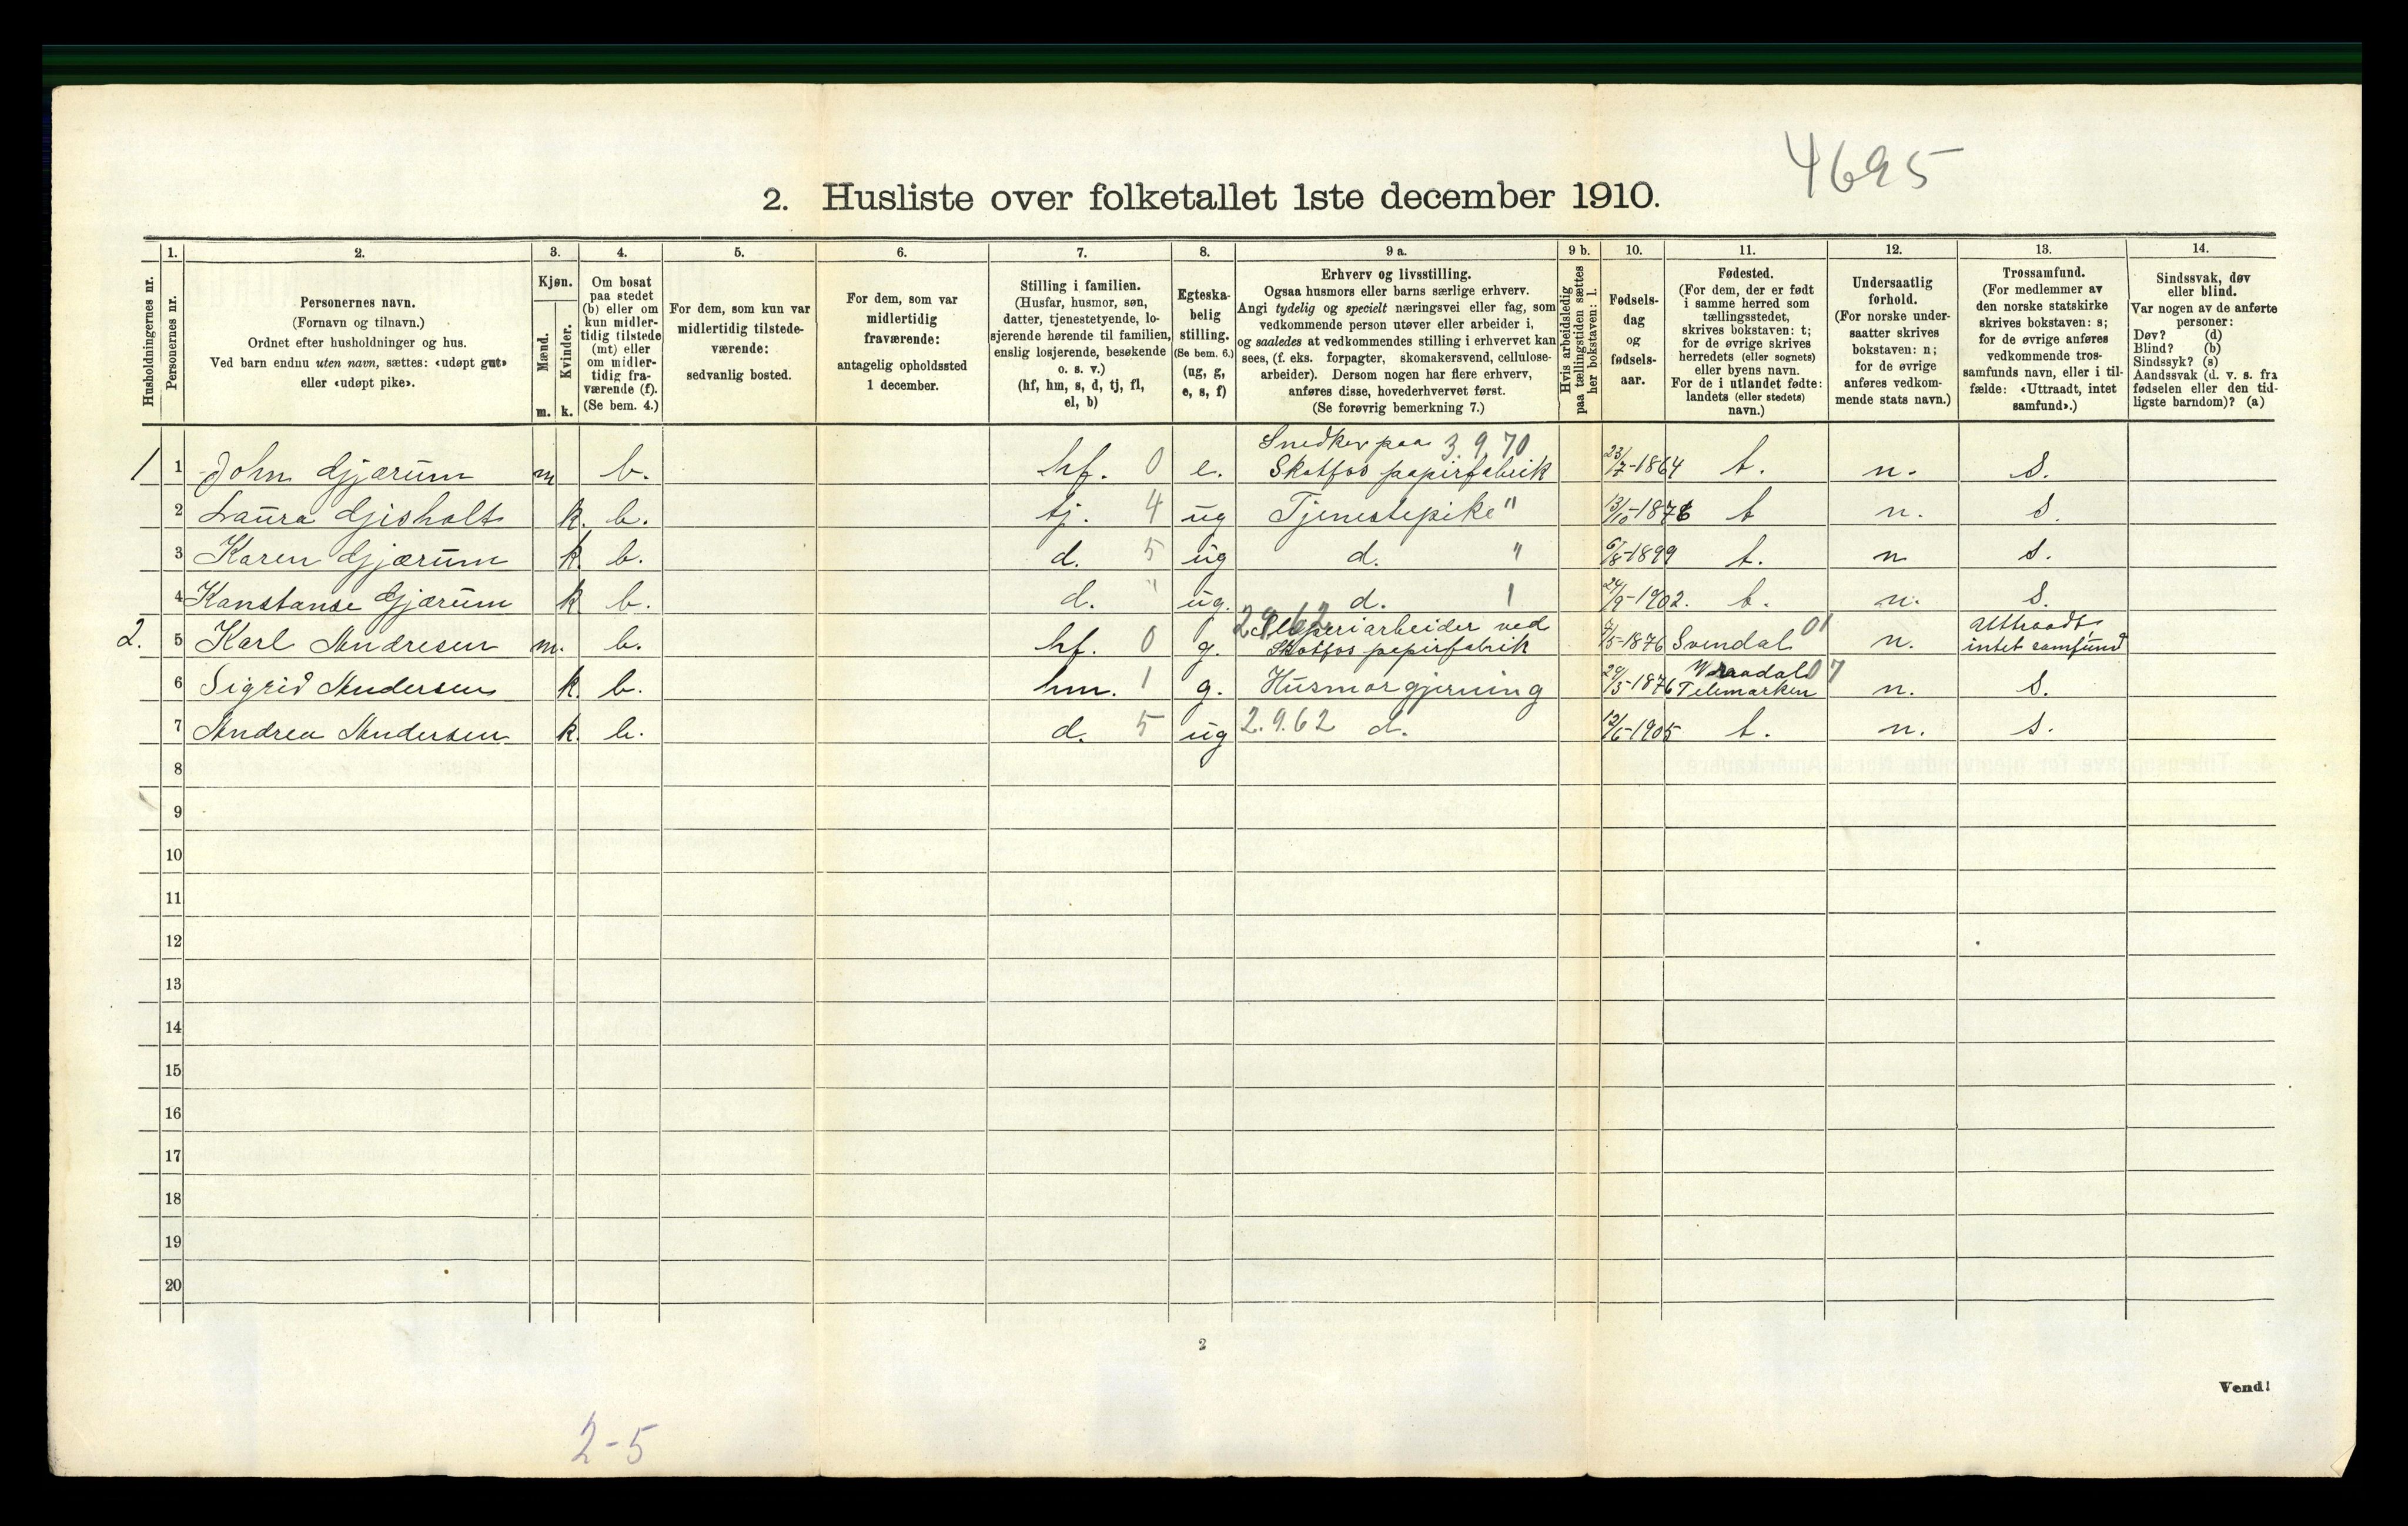 4695
2. Husliste over folketallet 1ste december 1910.
1. 2. 3. 4. 5. 6. 7. 8. 9 a. 9 b. 10. 11. 12. 13. 14.
Husholdningernes nr.
Personernes nr.
Personernes navn.
(Fornavn og tilnavn.)
Ordnet efter husholdninger og hus.
Ved barn endnu uten navn, sættes: «udøpt gut»
eller «udøpt pike».
Kjøn.
Mænd.
Kvinder.
m. k.
Om bosat
paa stedet
(b) eller om
kun midler-
tidig tilstede
(mt) eller
om midler-
tidig fra-
værende (f).
(Se bem. 4.)
For dem, som kun var
midlertidig tilstede-
værende:
sedvanlig bosted.
For dem, som var
midlertidig
fraværende:
antagelig opholdssted
1 december.
Stilling i familien.
(Husfar, husmor, søn,
datter, tjenestetyende, lo-
sjerende hørende til familien,
enslig losjerende, besøkende
o. s. v.)
(hf, hm, s, d, tj, fl,
el, b)
Egteska-
belig
stilling.
(Se bem. 6.)
(ug, g,
e, s, f)
Erhverv og livsstilling.
Ogsaa husmors eller barns særlige erhverv.
Angi tydelig og specielt næringsvei eller fag, som
vedkommende person utøver eller arbeider i,
og saaledes at vedkommendes stilling i erhvervet kan
sees, (f. eks. forpagter, skomakersvend, cellulose-
arbeider). Dersom nogen har flere erhverv,
anføres disse, hovederhvervet først.
(Se forøvrig bemerkning 7.)
Hvis arbeidsledig
paa tællingstiden sættes
her bokstaven: l.
Fødsels-
dag
og
fødsels-
aar.
Fødested.
(For dem, der er født
i samme herred som
tællingsstedet,
skrives bokstaven: t;
for de øvrige skrives
herredets (eller sognets)
eller byens navn.
For de i utlandet fødte:
landets (eller stedets)
navn.)
Undersaatlig
forhold.
(For norske under-
saatter skrives
bokstaven: n;
for de øvrige
anføres vedkom-
mende stats navn.)
Trossamfund.
(For medlemmer av
den norske statskirke
skrives bokstaven: s;
for de øvrige anføres
vedkommende tros-
samfunds navn, eller i til-
fælde: «Uttraadt, intet
samfund».)
Sindssvak, døv
eller blind.
Var nogen av de anførte
personer:
Døv? (d)
Blind? (b)
Sindssyk? (s)
Aandssvak (d. v. s. fra
fødselen eller den tid-
ligste barndom)? (a)
Snedker paa 3.9.70
1 1 John Gjærum m b. hf. 0 e. Skotfos papirfabrik 23/7-1864 t. n. s.
2 Laura Gisholt k. b. tj. 4 ug Tjenestepike " 13/10-1876 t n. s.
3 Karen Gjærum k. b. d. 5 ug d. " 6/8-1899 t. n s.
4 Kanstanse Gjærum k b. d. " ug. d. 1 24/9-1902. t. n. s.
2.9.62 ved 01
2. 5 Karl Andresen m. b. hf. 0 g. Skotfos papirfabrik 4/5-1876 Svendal n. intet samfund
07
6 Sigrid Andersen k. b. hm. 1 g. Husmorgjerning 29/3-1876 Telemarken n. s.
7 Andrea Andersen k. b. d. 5 ug 2.9.62 d. 12/6-1905 t. n. s.
8
9
10
11
12
13
14
15
16
17
18
19
20
2
Vend!
2-5